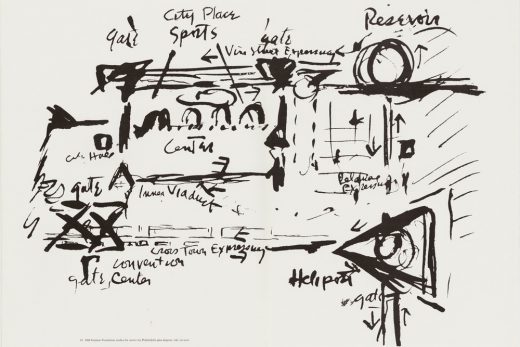 City Place
Sports
gate
gate
Vine Street Expressway
Reservoir
Center
City Hall
gate
Inner Viaduct
Delaware
Expressway
Cross Town Expressway
Convention
Center
gate
Heliport
gate